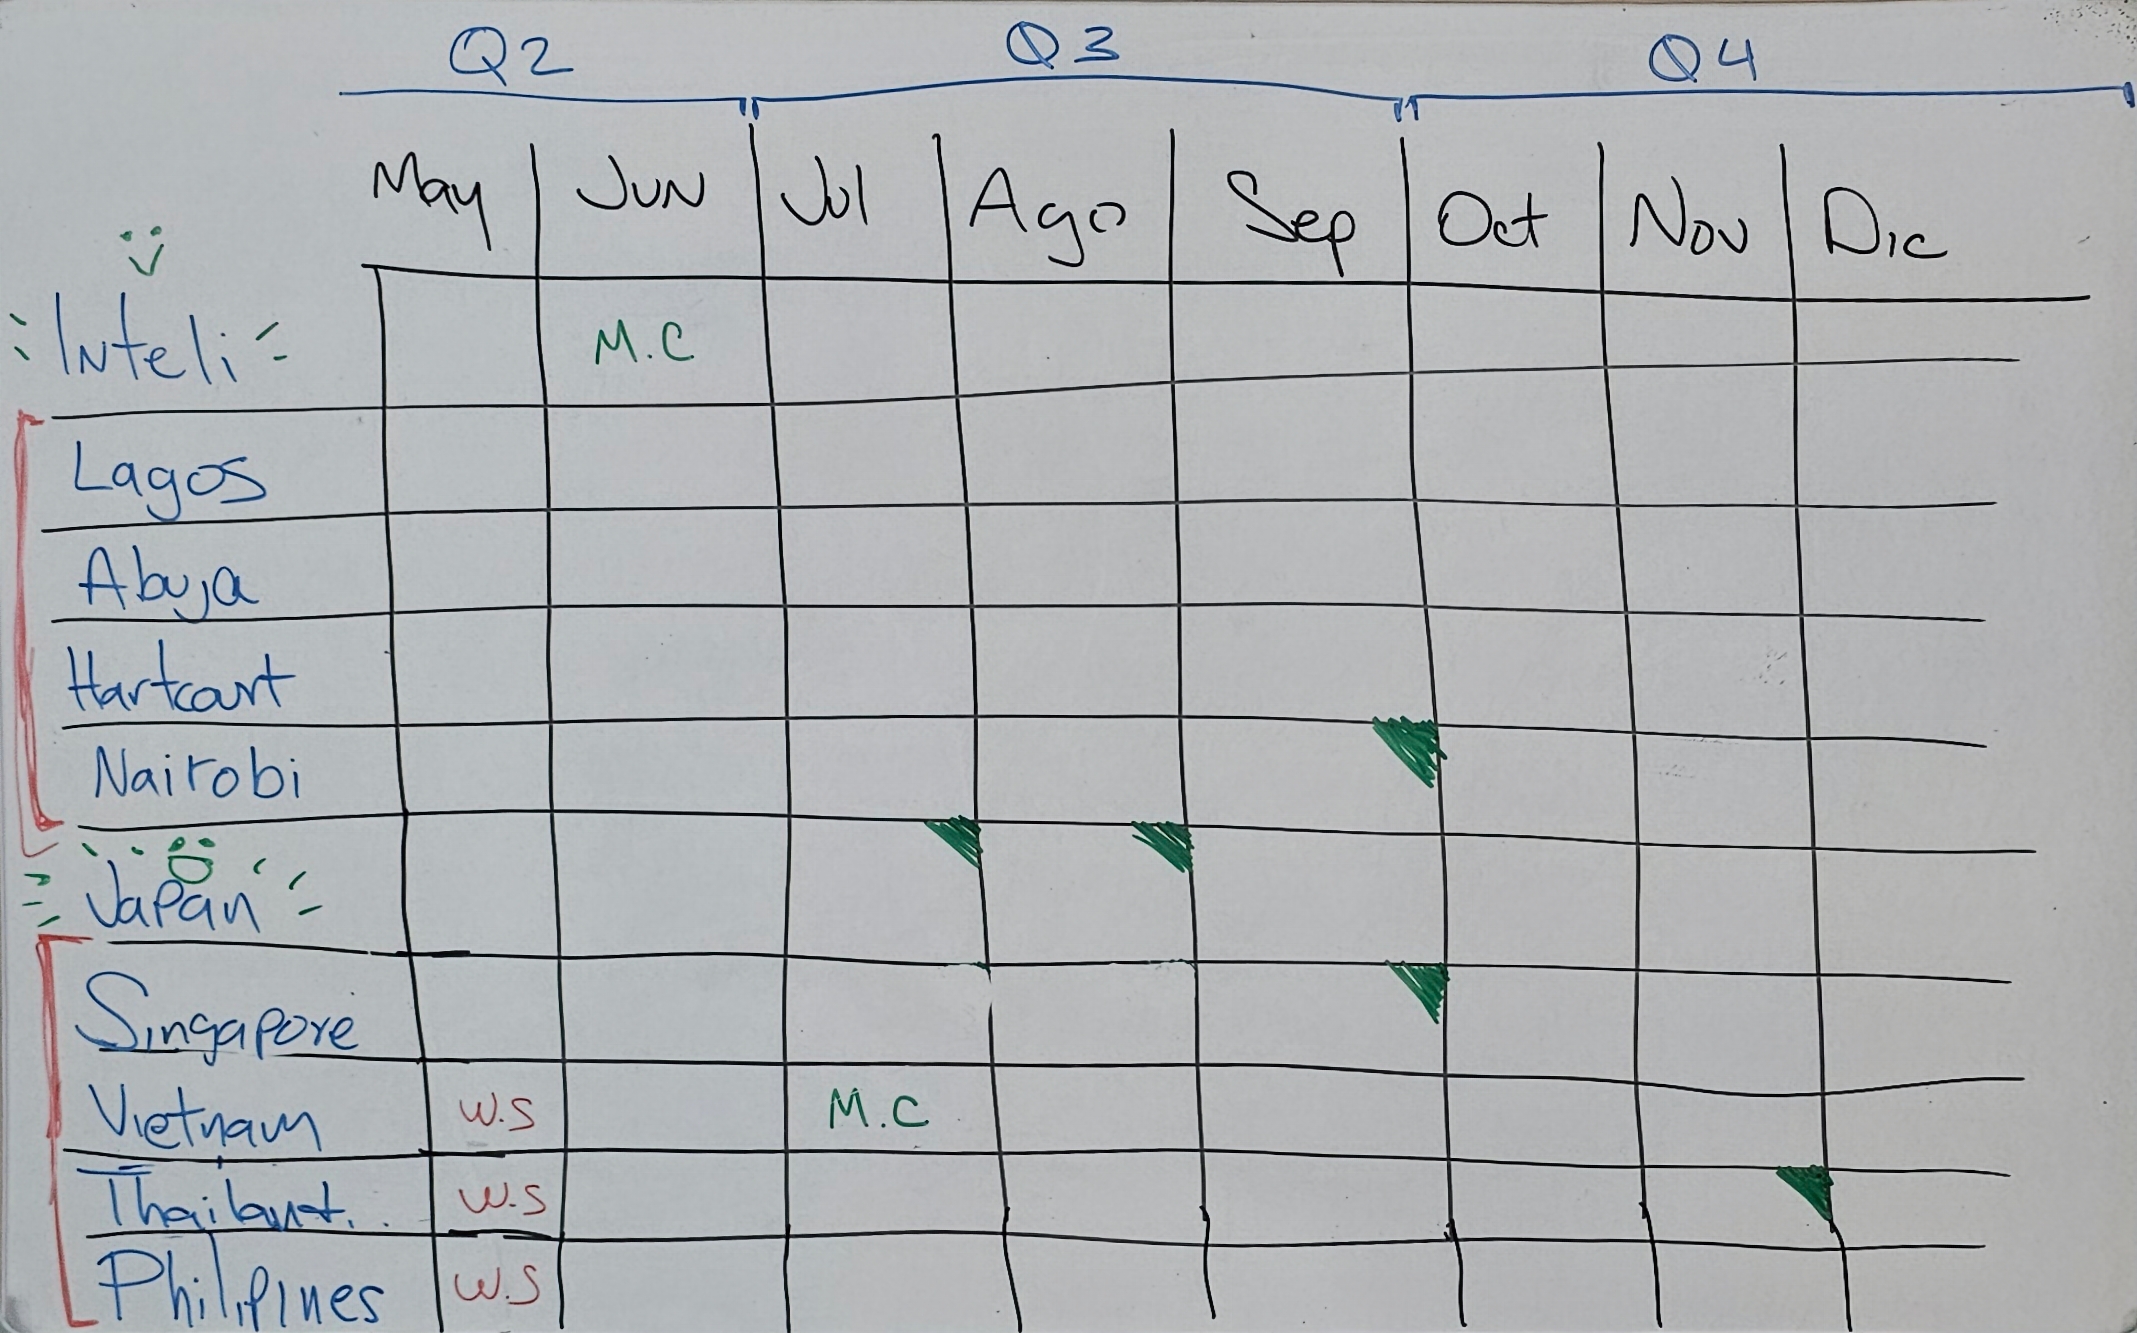 Q2 Q3 Q4
May Jun Jul Ago Sep Oct Nov Dic
Inteli M.C
Lagos
Abuja
Hartcourt
Nairobi
Japan
Singapore
Vietnam W.S M.C
W.S
Philipines W.S